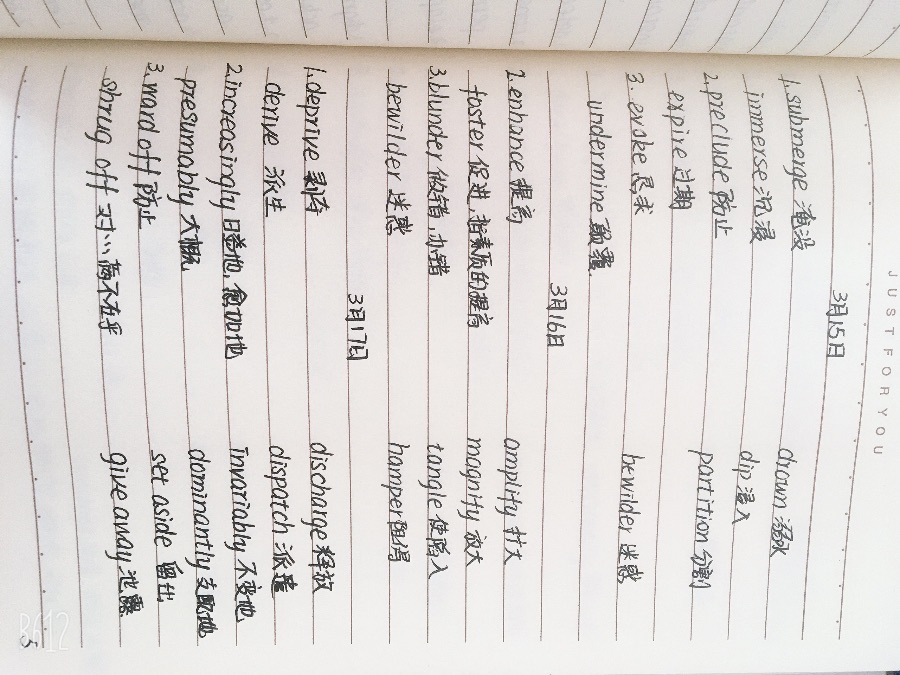 JUST FOR YOU
3月15日
1. submerge 淹没 drown 溺水
immerse 沉浸 dip 浸入
2. preclude 防止 partition 分割
expire 过期
3. evoke 唤起 bewilder 迷惑
undermine 颠覆
3月16日
2. enhance 提高 amplify 扩大
foster 促进,指素质的提高 magnity 放大
3. blunder 做错,办错 tangle 使陷入
bewilder 迷惑 hamper 阻碍
3月17日
1. deprive 剥夺 discharge 释放
derive 派生 dispatch 派遣
2. increasingly 日益地,愈加地 invariably 不变地
presumably 大概 dominantly 支配地
3. ward off 防止 set aside 留出
shrug off 对…满不在乎 give away 泄露
5
B612